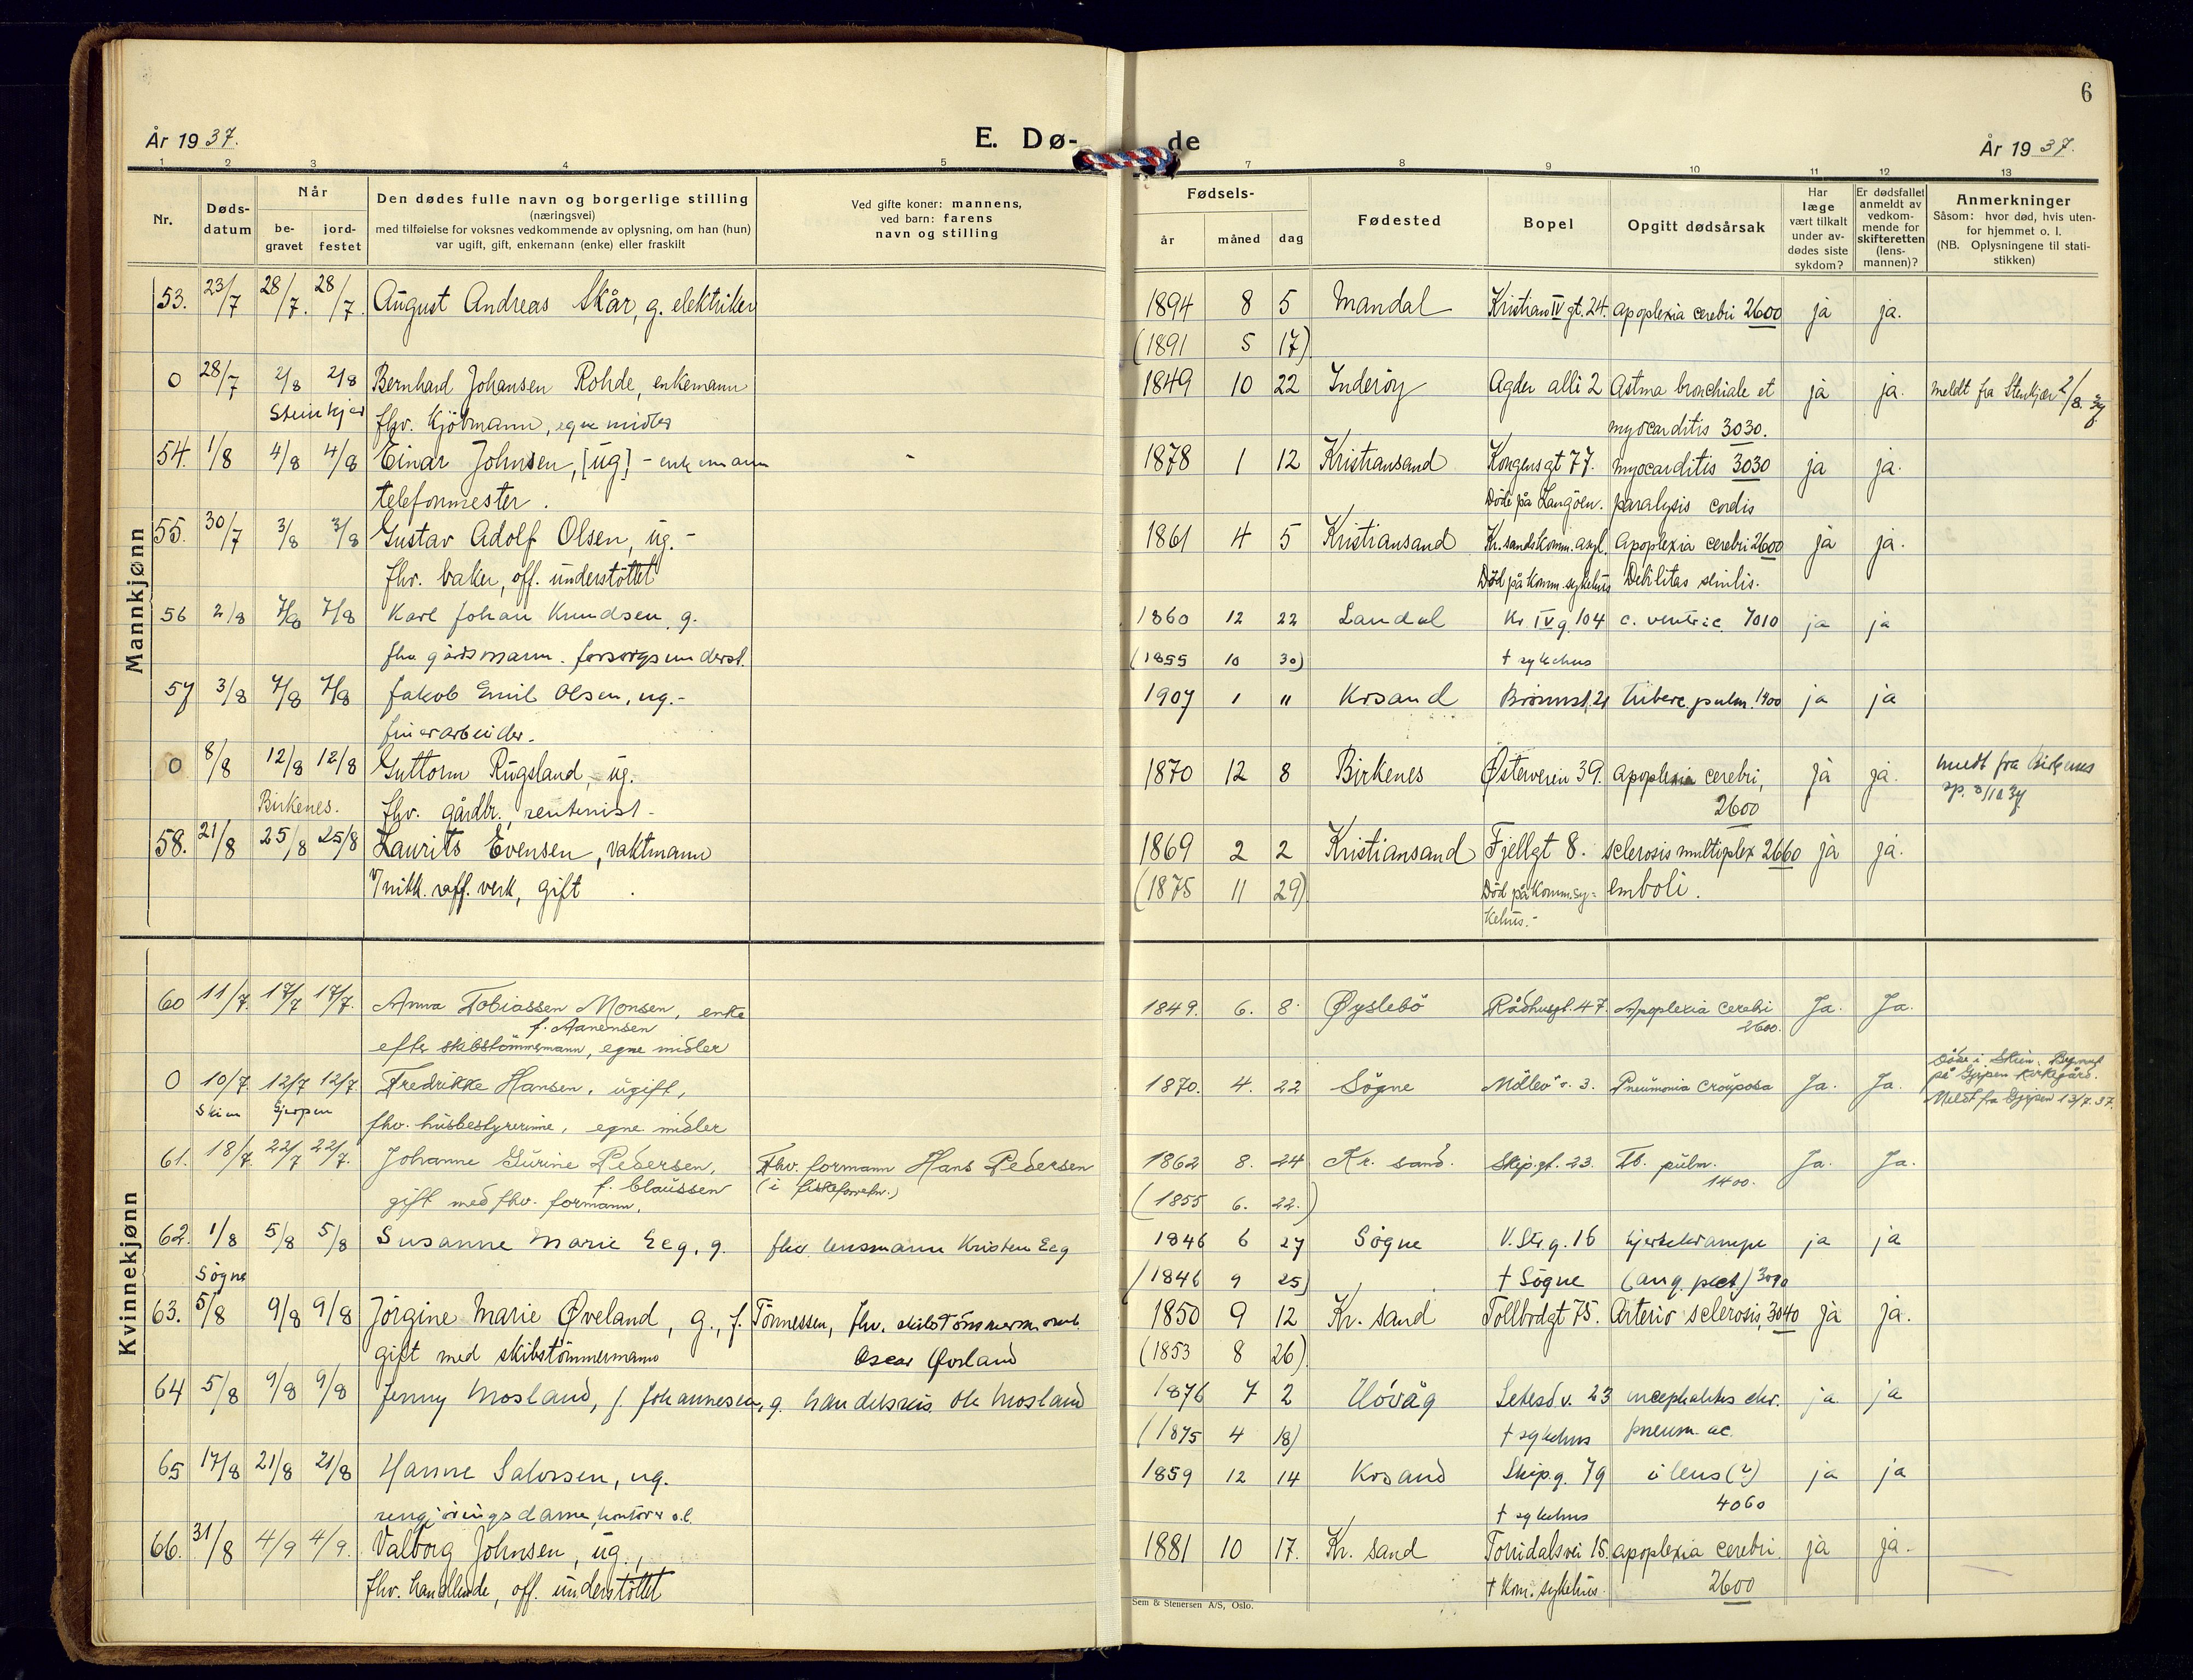 6
År 1937. E. Dø- de År 1937.
1 2 3 4 5 7 8 9 10 11 12 13
Nr.
Døds-
datum
Når
be-
gravet
jord-
festet
Den dødes fulle navn og borgerlige stilling
(næringsvei)
med tilføielse for voksnes vedkommende av oplysning, om han (hun)
var ugift, gift, enkemann (enke) eller fraskilt
Ved gifte koner: mannens,
ved barn: farens
navn og stilling
Fødsels-
år måned dag
Fødested
Bopel
Opgitt dødsårsak
Har
læge
vært tilkalt
under av-
dødes siste
sykdom?
Er dødsfallet
anmeldt av
vedkom-
mende for
skifteretten
(lens-
mannen)?
Anmerkninger
Såsom: hvor død, hvis uten-
for hjemmet o. l.
(NB. Oplysningene til stati-
stikken)
Mannkjønn
53. 23/7 28/7. 28/7. August Andreas Skår, g. elektriker 1894 8 5 Mandal Kristian IV gt. 24. apoplexia cerebri 2600 ja ja.
(1891 5 17)
0 28/7 2/8 2/8 Bernhard Johansen Rohde, enkemann 1849 10 22 Inderøy Agder alli 2 Astma bronchiale et ja ja. meldt fra Stenkjær 2/8. 37
Steinkjer fhv. kjöbmann, egne midler myocarditis 3030.
54. 1/8 4/8 4/8 Einar Johnsen, [ug] - enkemann 1878 1 12 Kristiansand Kongensgt 77. myocarditis 3030 ja ja.
telefonmester. Döde på Langöen. paralysis cordis
55. 30/7 3/8 3/8 Gustav Adolf Olsen, ug. - 1861 4 5 Kristiansand Kr.sands Komm. asyl. Apoplexia cerebri 2600 ja ja.
fhv. baker, off. understöttet Död på Komm. sykehus Debilitas senilis.
56 2/8 7/8 7/8 Karl Johan Knudsen g. 1860 12 22 Landal Kr. IV g. 104 c. ventric. 7010 ja ja
fhv. gårdsmann. forsorgsunderst. (1855 10 30) † sykehus
57 3/8 7/8 7/8 Jakob Emil Olsen, ug. - 1907 1 11 Krsand Brönnst. 21 tuberc. pulm. 1400 ja ja
finerarbeider.
0 8/8 12/8 12/8 Guttorm Rugsland, - ug. 1870 12 8 Birkenes Østerveien 39. apoplexia cerebri, ja ja. meldt fra Birkenes
Birkenes. fhv. gårdbr., rentenist - 2600 sp. 8/10 37
58. 21/8 25/8 25/8 Laurits Evensen, vaktmann 1869 2 2 Kristiansand Fjellgt 8. sclerosis multiplex 2660 ja ja.
v/nikk. raff. verk, gift. (1875 11 29) Död på Komm. sy= emboli.
kehus.-
Kvinnekjønn
60 11/7. 17/7 17/7. Anna Tobiassen Monsen, enke 1849. 6. 8. Øyslebö Rådhusgt. 47. Apoplexia cerebri Ja. Ja.
f. Aanensen 2600.
efter skibstömmermann, egne midler
0 10/7. 12/7 12/7. Fredrikke Hansen, ugift, 1870. 4. 22 Sögne Möllev. 3. Pneumonia crouposa Ja. Ja. Döde i Skien. Begravet
på Gjerpen kirkegård.
Skien Gjerpen fhv. husbestyrerinne, egne midler Meldt fra Gjerpen 13/7. 37.
61. 18/7. 22/7 22/7. Johanne Gurine Pedersen, Fhv. formann Hans Pedersen 1862 8. 24 Kr. sand. Skip.gt. 23. Tb. pulm. Ja. Ja.
f. Claussen (i fiskeforretn.) 1400.
gift med fhv. formann, (1855 6. 22.)
62. 1/8 5/8 5/8 Susanne Marie Eeg, g. fhv. lensmann Kristen Eeg 1846 6 27 Sögne V. Str. g. 16 hjertekrampe ja ja
Sögne (1846 9 25) † Sögne (ang. pect) 3090
63. 5/8 9/8 9/8 Jörgine Marie Øveland, g., f. Tönnessen, fhv. skibstömmermann 1850 9 12 Kr. sand Tollbodgt 75. Arterio sclerosis, 3040 ja ja.
gift med skibstömmermann Oscar Øveland (1853 8 26)
64 5/8 9/8 9/8 Jenny Mosland, f. Johannesen, g. handelsreis. Ole Mosland 1876 7 2 Hövåg Setesd.v. 23 encephalitis chr. ja ja
(1875 4 18) † sykehus pneum. ac.
65 17/8 21/8 21/8 Hanne Salvesen, ug. 1859 12 14 Krsand Skip.g. 79 ileus (?) ja ja
rengjöringsdame, kontorer o.l. † sykehus 4060
66. 31/8 4/9 4/9. Valborg Johnsen, ug., 1881 10 17. Kr. sand Torridalsvei 15. apoplexia cerebri. ja ja.
fhv. handlende, off. understöttet † Kom. sykehus. 2600
Sem & Stenersen A/S, Oslo.